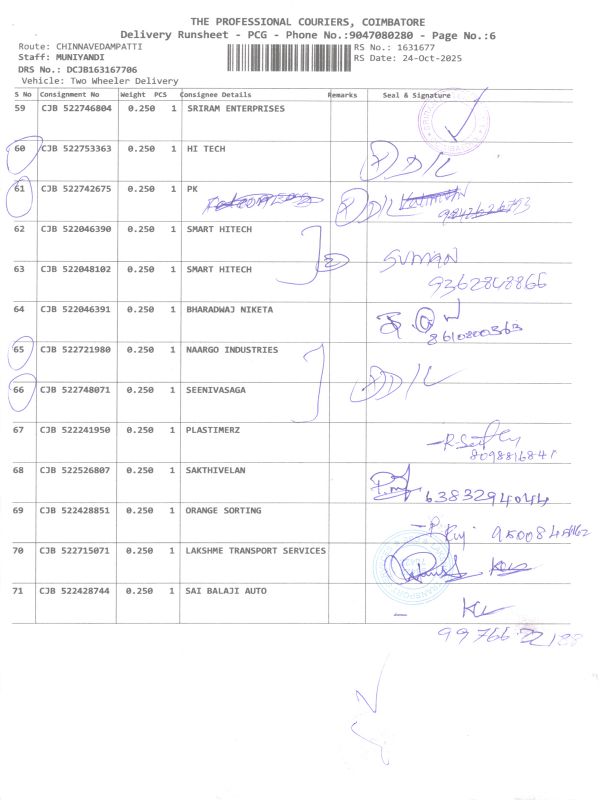 THE PROFESSIONAL COURIERS, COIMBATORE
Delivery Runsheet - PCG - Phone No.:9047080280 - Page No.:6
Route: CHINNAVEDAMPATTI RS No.: 1631677
Staff: MUNIYANDI RS Date: 24-Oct-2025
DRS No.: DCJB163167706
Vehicle: Two Wheeler Delivery
S No Consignment No Weight PCS Consignee Details Remarks Seal & Signature
59 CJB 522746804 0.250 1 SRIRAM ENTERPRISES
60 CJB 522753363 0.250 1 HI TECH D/L
61 CJB 522742675 0.250 1 PK D/L
62 CJB 522046390 0.250 1 SMART HITECH
2 SUMAN
63 CJB 522048102 0.250 1 SMART HITECH
9362848866
64 CJB 522046391 0.250 1 BHARADWAJ NIKETA
8610800363
65 CJB 522721980 0.250 1 NAARGO INDUSTRIES
D/L
66 CJB 522748071 0.250 1 SEENIVASAGA
67 CJB 522241950 0.250 1 PLASTIMERZ
8098816841
68 CJB 522526807 0.250 1 SAKTHIVELAN
6383294044
69 CJB 522428851 0.250 1 ORANGE SORTING
70 CJB 522715071 0.250 1 LAKSHME TRANSPORT SERVICES
71 CJB 522428744 0.250 1 SAI BALAJI AUTO